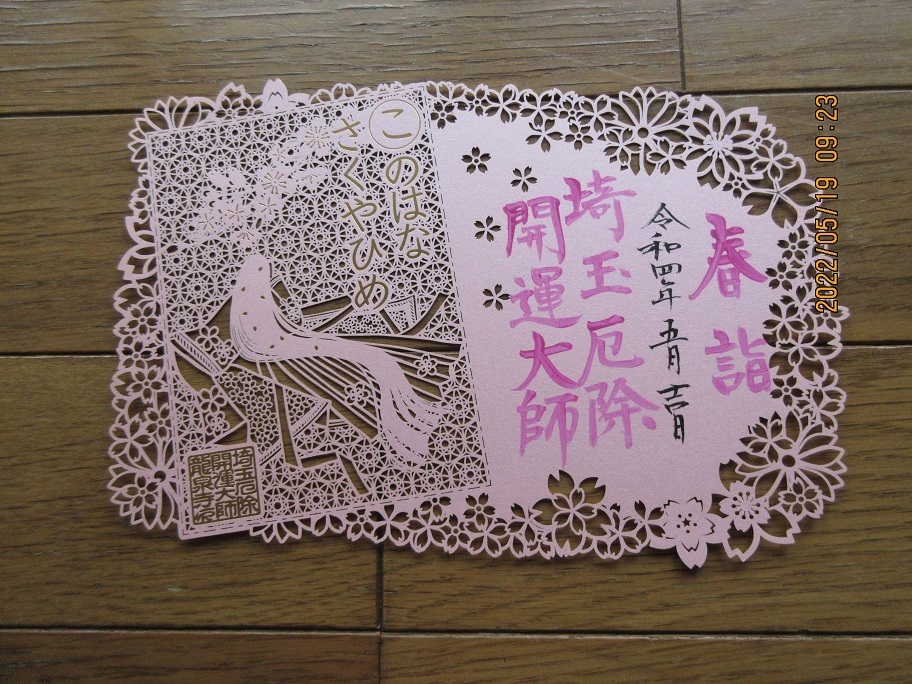 春詣
令和四年五月吉日
埼玉厄除
開運大師
このはな
さくやひめ
埼玉厄除
開運大師
龍泉寺
2022/05/19 09:23